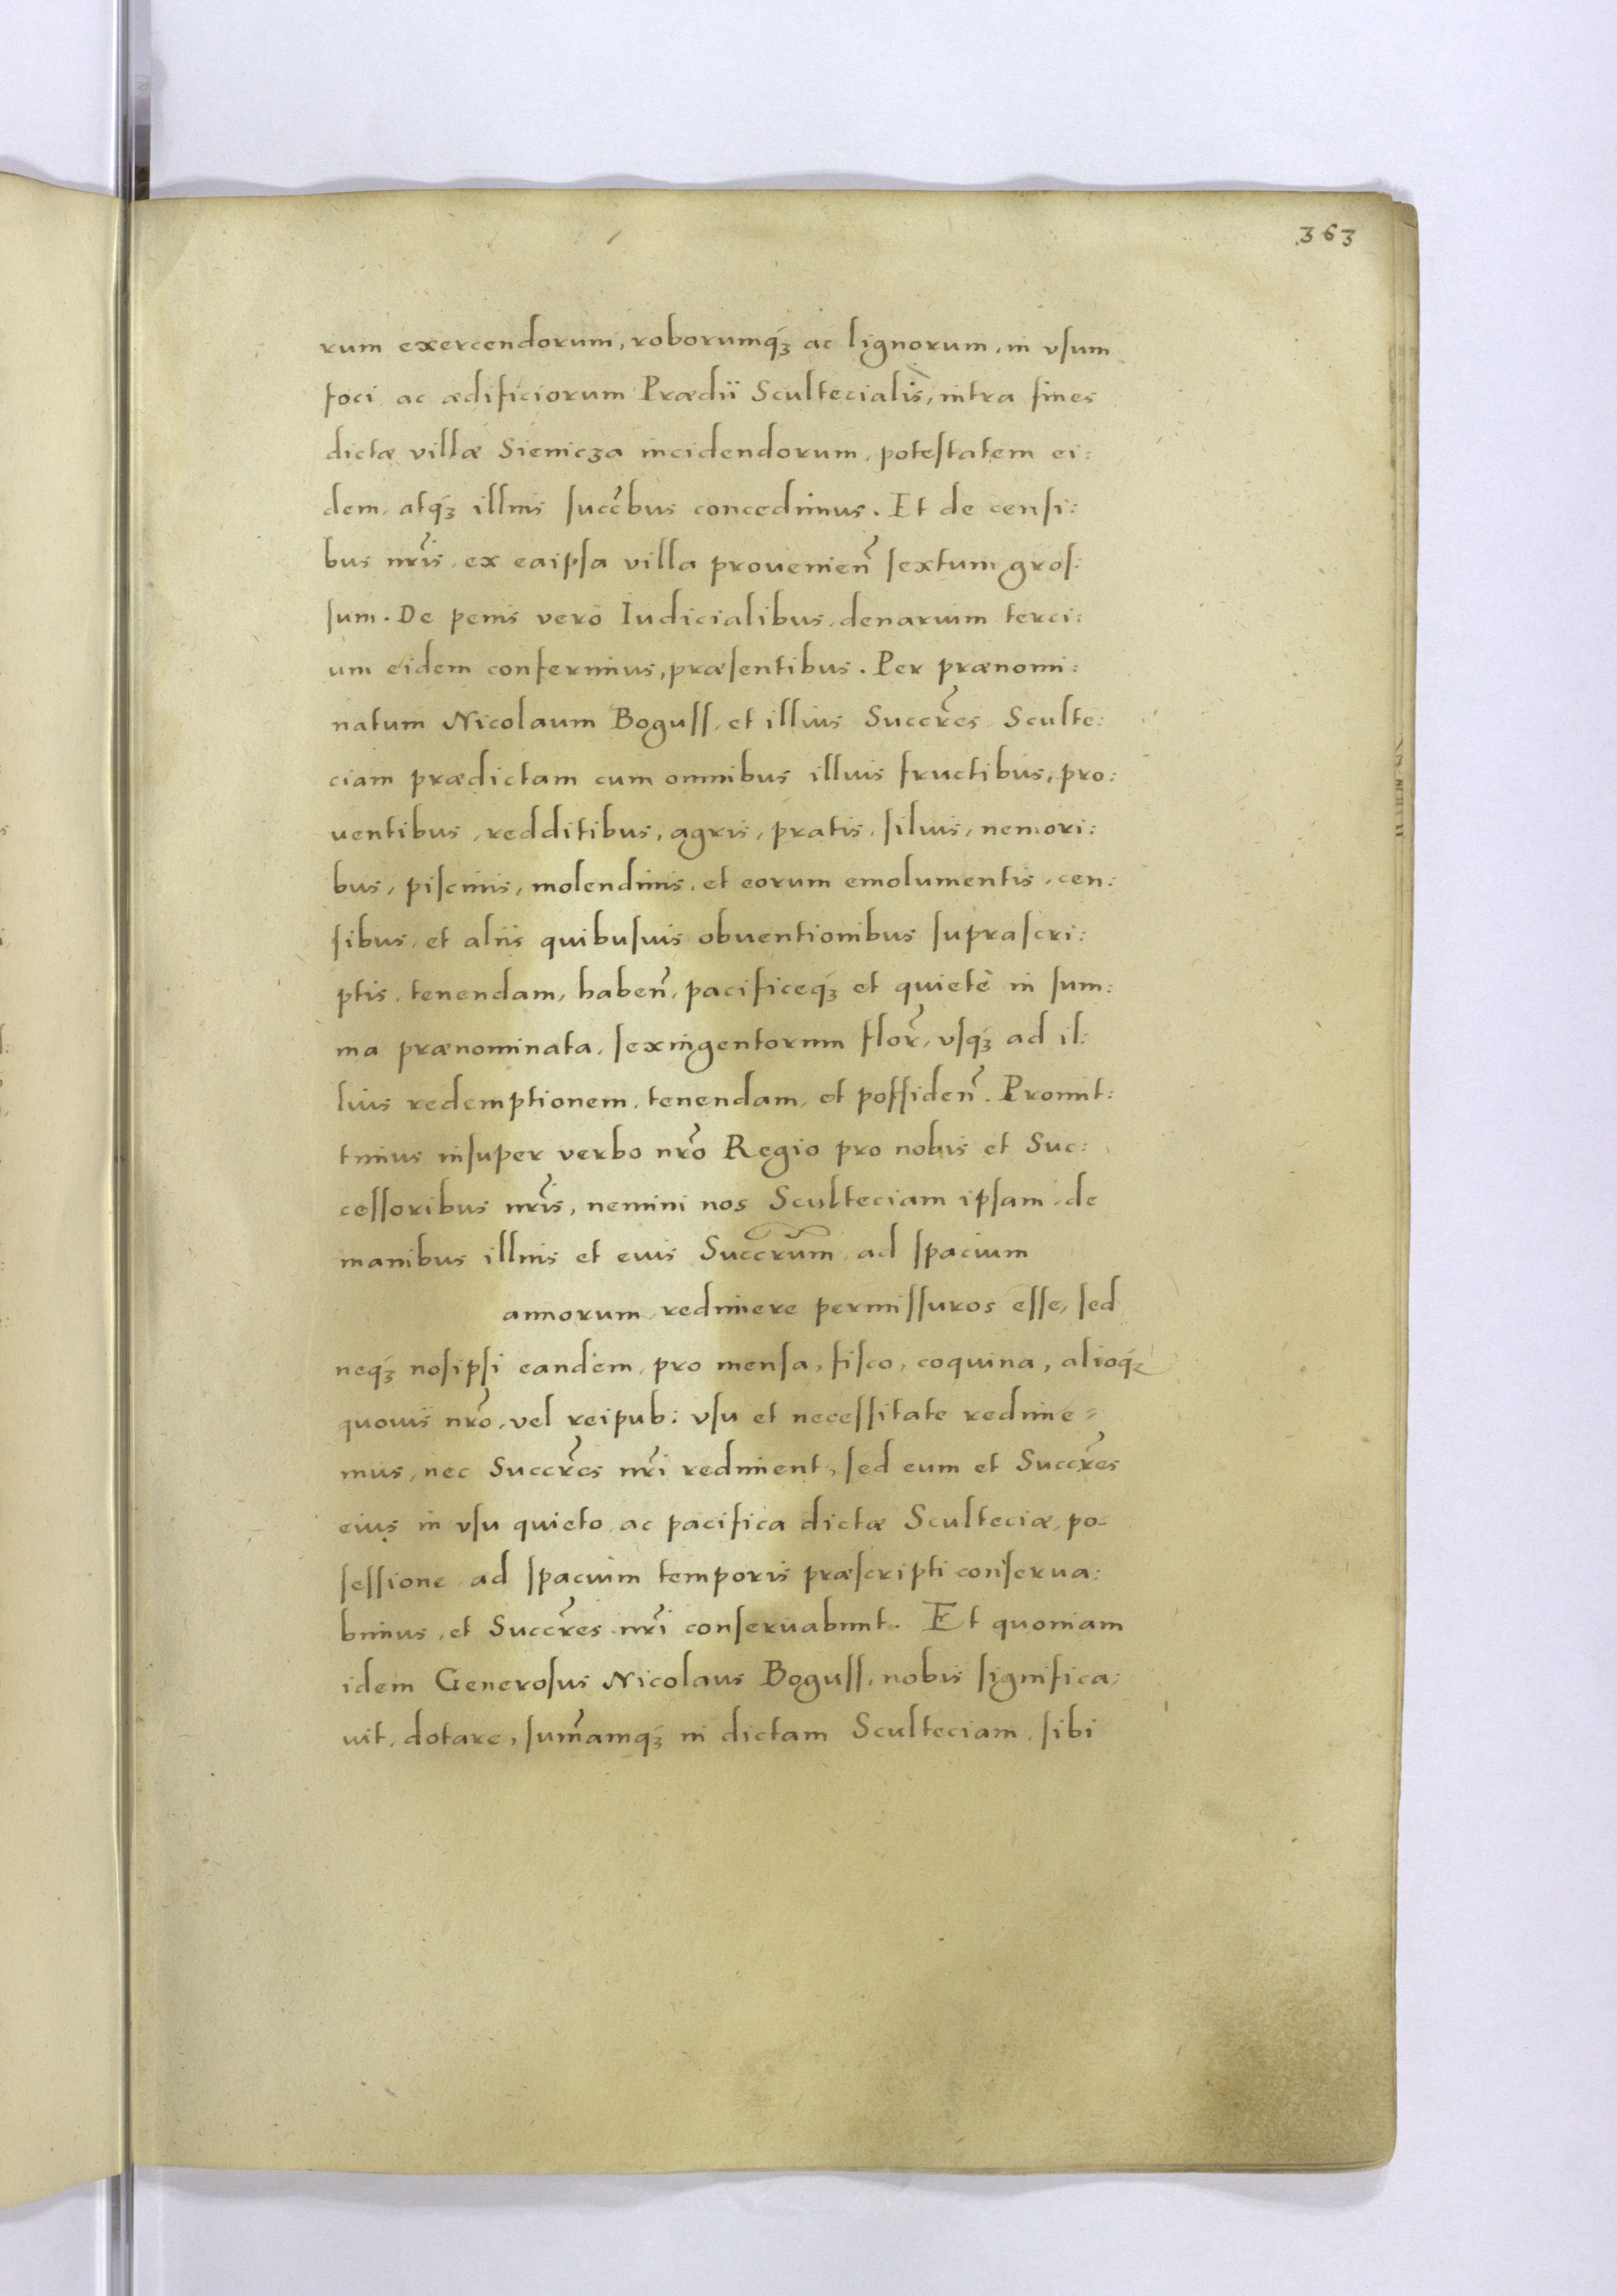 363
rum exercendorum, roborumq́ꝫ ac lignorum, in vſum
foci ac ædificiorum Prædii Scultecialis, intra fines
dictæ villæ Sieniczа incidendorum, poteſtatem ei:
dem, atq́ꝫ illius ſucc̃bus concedimus. Et de cenſi:
bus nr̃is, ex eaipſa villa prouenień ſextum groſ:
ſum. De penis vero Iudicialibus, denarium terci:
um eidem conferimus, præſentibus. Per prænomi:
natum Nicolaum Boguſſ, et illius Succr̃es Sculte:
ciam prædictam cum omnibus illius fructibus, pro:
uentibus, redditibus, agris, pratis, ſiluis, nemori:
bus, piſcinis, molendinis, et eorum emolumentis, cen:
ſibus, et aliis quibuſuis obuentionibus ſupraſcri:
ptis, tenendam, habeñ, pacificeq́ꝫ et quietè in ſum:
ma prænominata, ſexingentorum flor̃, vſq́ꝫ ad il:
lius redemptionem, tenendam, et poſſideñ. Promit:
timus inſuper verbo nr̃o Regio pro nobis et Suc:
ceſſoribus nr̃is, nemini nos Sculteciam ipſam de
manibus illius et eius Succr̃um ad ſpacium
annorum, redimere permiſſuros eſſe, ſed
neq́ꝫ noſipſi eandem, pro menſa, fiſco, coquina, alioq́ꝫ
quouis nr̃o, vel reipub: vſu et neceſſitate redime=
mus, nec Succr̃es nr̃i redimient, ſed eum et Succr̃es
eius in vſu quieto, ac pacifica dictæ Scultecię, po-
ſeſſione ad ſpacium temporis præſcripti conſerua:
bimus, et Succr̃es nr̃i conſeruabunt. Et quoniam
idem Generoſus Nicolaus Boguſſ, nobis ſignifica:
uit, dotare, ſum̃amq́ꝫ in dictam Sculteciam, ſibi